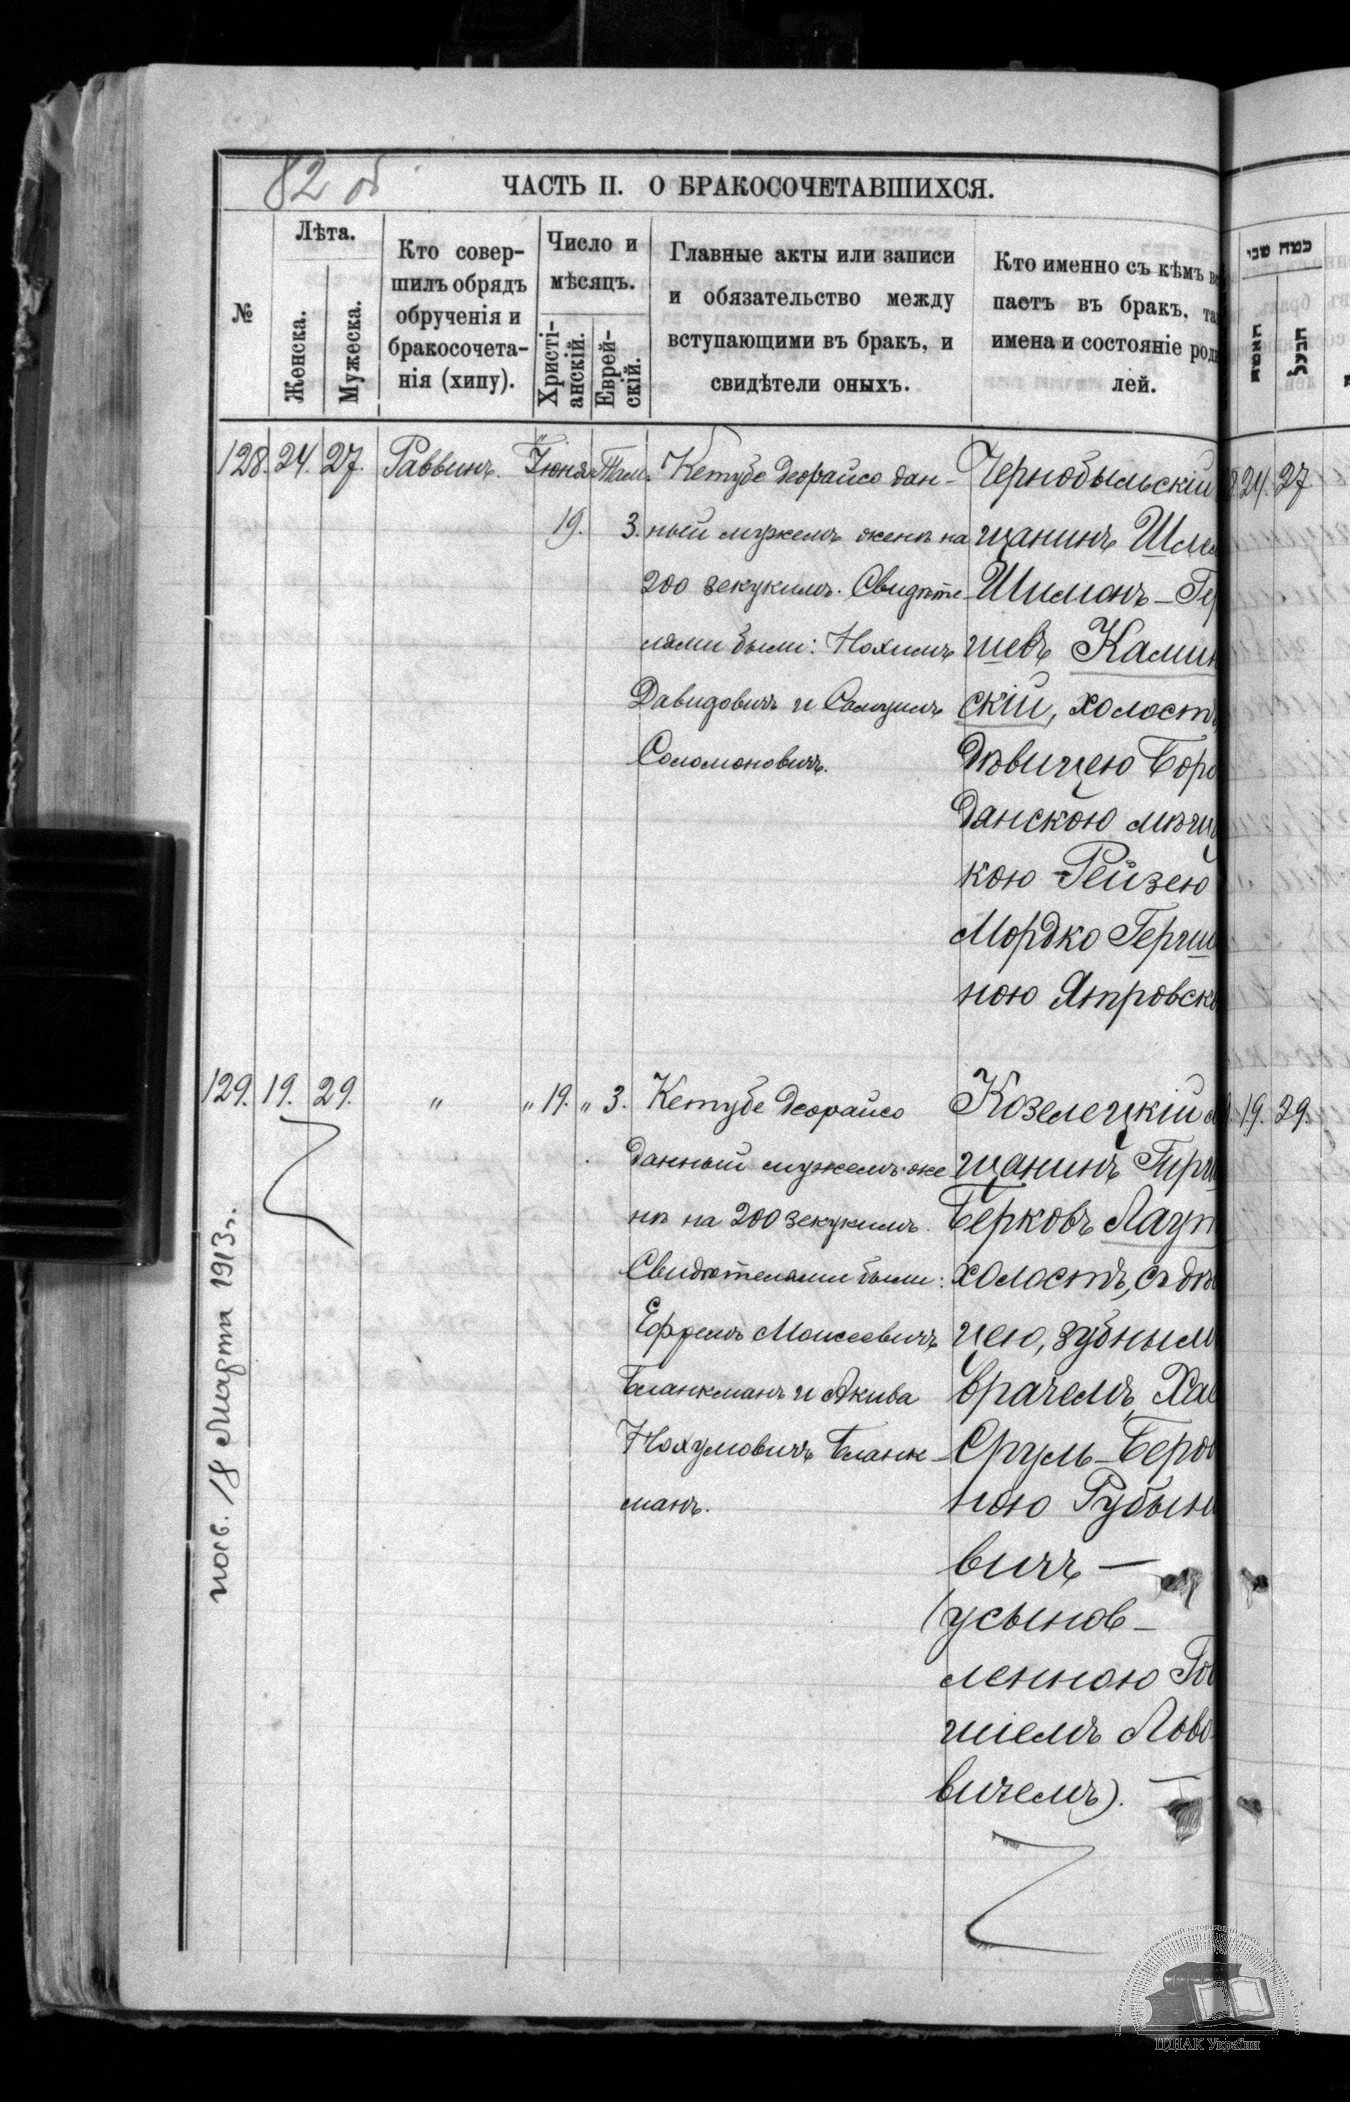 82 об
ЧАСТЬ II. О БРАКОСОЧЕТАВШИХСЯ.
№
Лѣта.
Женска.
Мужеска.
Кто совер-
шилъ обрядъ
обрученія и
бракосочета-
нія (хипу).
Число и
мѣсяцъ.
Христі-
анскій.
Еврей-
скій.
Главные акты или записи
и обязательство между
вступающими въ бракъ, и
свидѣтели оныхъ.
Кто именно съ кѣмъ
паетъ въ бракъ,
имена и состояніе
лей.
כמה שני
האשה
הבעל
128. 24. 27. Раввинъ. Іюня 19. Там. 3.
Кетубе Деорайсо дан-
ный мужемъ женѣ на
200 зекукимъ. Свидѣте-
лями были: Нохимъ
Давидовичъ и Самуилъ
Соломоновичъ.
Чернобыльскій
щанинъ
Шимонъ-
шевъ Камин
скій, холостъ
дѣвицею
данскою мѣщ
кою Рейзею
Мордко Герш
ною Ятровск
24. 27
129. 19. 29. " " 19. " 3.
Кетубе Деорайсо
данный мужемъ же
нѣ на 200 зекукимъ.
Свидѣтелями были:
Ефремъ Моисеевичъ
Бланкманъ и Акива
Нохумовичъ Бланк-
манъ.
Козелецкій
щанинъ
Берковъ
холостъ, съ дѣв
цею, зубным
врачемъ,
Сруль-Беро
ною Рубын
вичъ —
(усынов-
ленною
шіемъ Льво
вичемъ). —
19. 29.
пов. 18 Марта 1913г.
ЦДІАК України